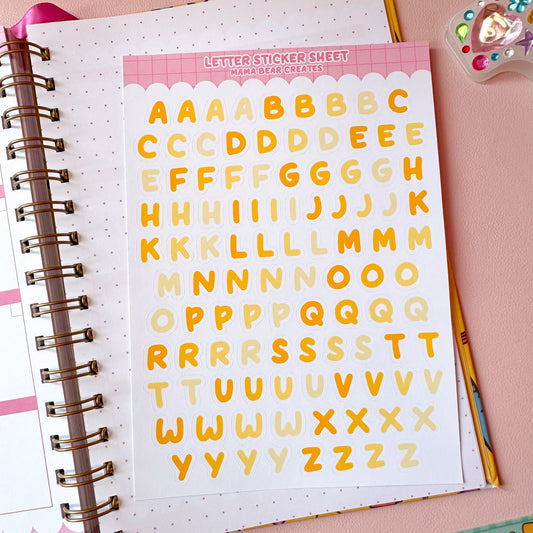 LETTER STICKER SHEET
MAMA BEAR CREATES
A A A A B B B B C
C C C D D D D E E E
E F F F F G G G G H
H H H I I I I J J J J K
K K K L L L L M M M
M N N N N O O O
O P P P P Q Q Q Q
R R R R S S S S T T
T T U U U U V V V V
W W W W X X X X
Y Y Y Y Z Z Z Z